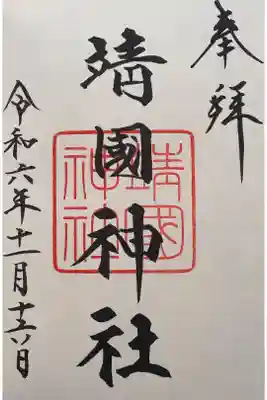 奉拝
靖國神社
靖國
神社
令和六年十一月十六日